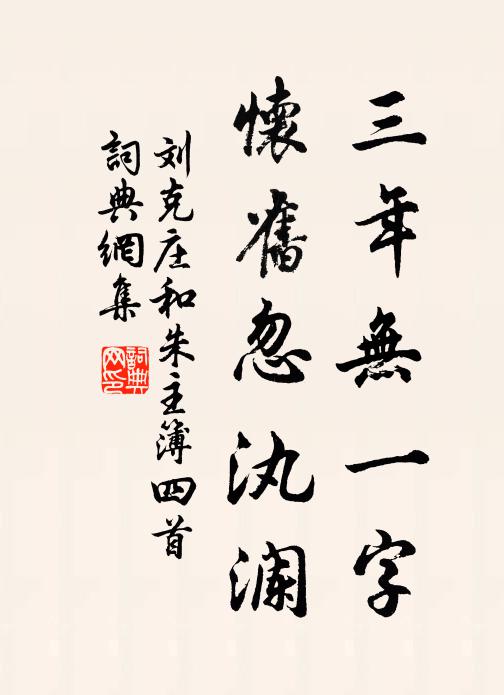 三年無一字
懷舊忽汍瀾
刘克庄和朱主簿四首
詞典網集
詞典网印